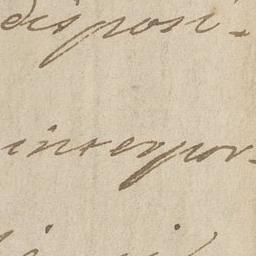 disposi-
interpor-